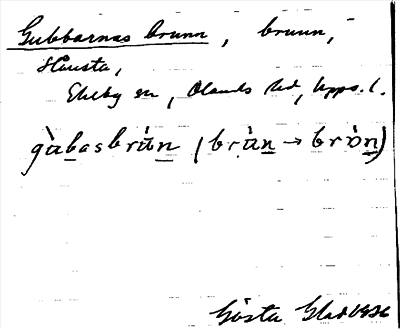 Gubbarnas brunn, brunn,
Harsta,
Ekeby sn, Olands hd, Upps. l.
gùbasbrùn (brùn → bròn)
Gösta Glad 1936